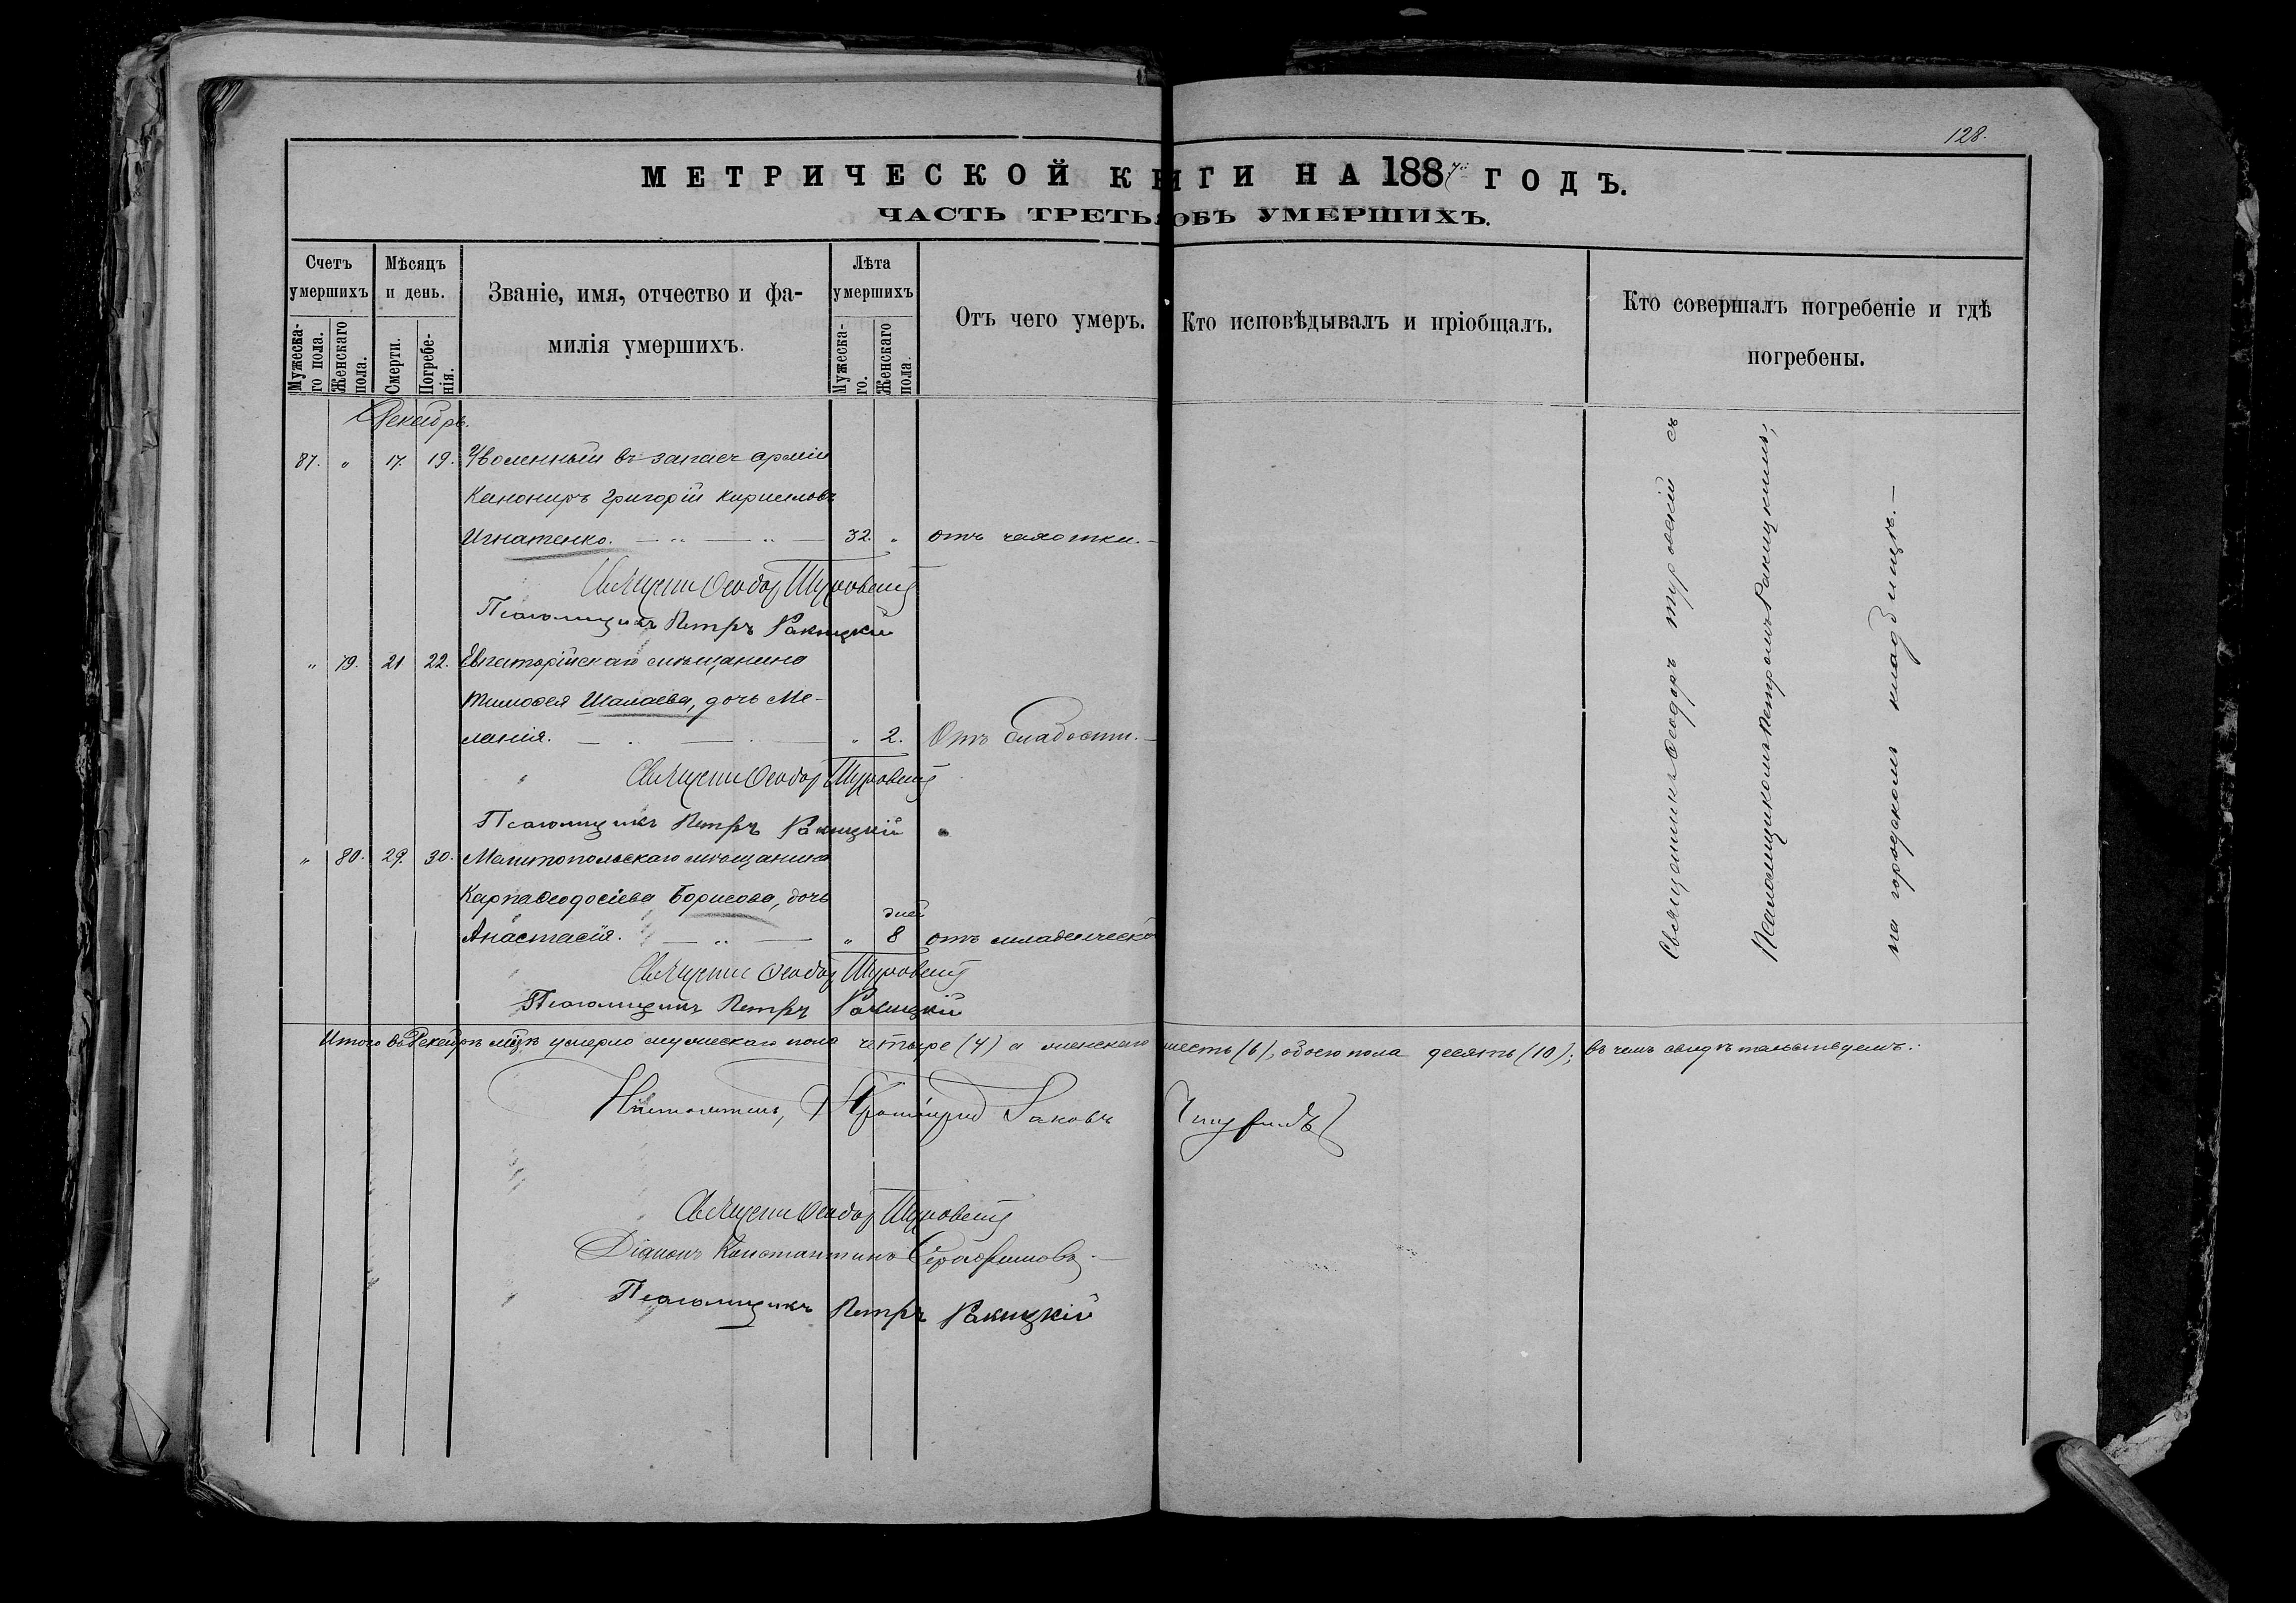 128.
МЕТРИЧЕСКОЙ КНИГИ НА 1887 ГОДЪ.
ЧАСТЬ ТРЕТЬЯ ОБЪ УМЕРШИХЪ.
Счетъ умершихъ
Мужеска-го пола.
Женскаго пола.
Мѣсяцъ и день.
Смерти.
Погребе-нія.
Званіе, имя, отчество и фа-
милія умершихъ.
Лѣта умершихъ
Мужеска-го.
Женскаго пола.
Отъ чего умеръ.
Кто исповѣдывалъ и пріобщалъ.
Кто совершалъ погребеніе и гдѣ
погребены.
Декабрь.
87. " 17. 19. Уволенный въ запасъ арміи
Канониръ Григорій Кирилловъ
Игнатенко. 32. " отъ чахотки.
Священникъ Ѳеодоръ
Псаломщикъ Петръ Ракицкій
" 79. 21. 22. Евпаторійскаго мѣщанина
Тимоѳея Шалаева, дочь Ме-
ланія. " 2. Отъ слабости.
Священникъ Ѳеодоръ
Псаломщикъ Петръ Ракицкій
" 80. 29. 30. Мелитопольскаго мѣщанина
Карпа Ѳеодосіева Борисова, дочь
дней
Анастасія. " 8 отъ младенческой
Священникъ Ѳеодоръ
Псаломщикъ Петръ Ракицкій
Священникъ Ѳеодоръ съ
Псаломщикомъ Петромъ Ракицкимъ,
на городскомъ кладбищѣ.
Итого въ Декабрѣ м͠цѣ умерло мужескаго пола четыре (4) а женскаго шесть (6), обоего пола десять (10); въ чемъ свидѣтельствуемъ:
Настоятель, Протоіерей Іаковъ
Священникъ Ѳеодоръ
Діаконъ Константинъ Серафимовъ
Псаломщикъ Петръ Ракицкій